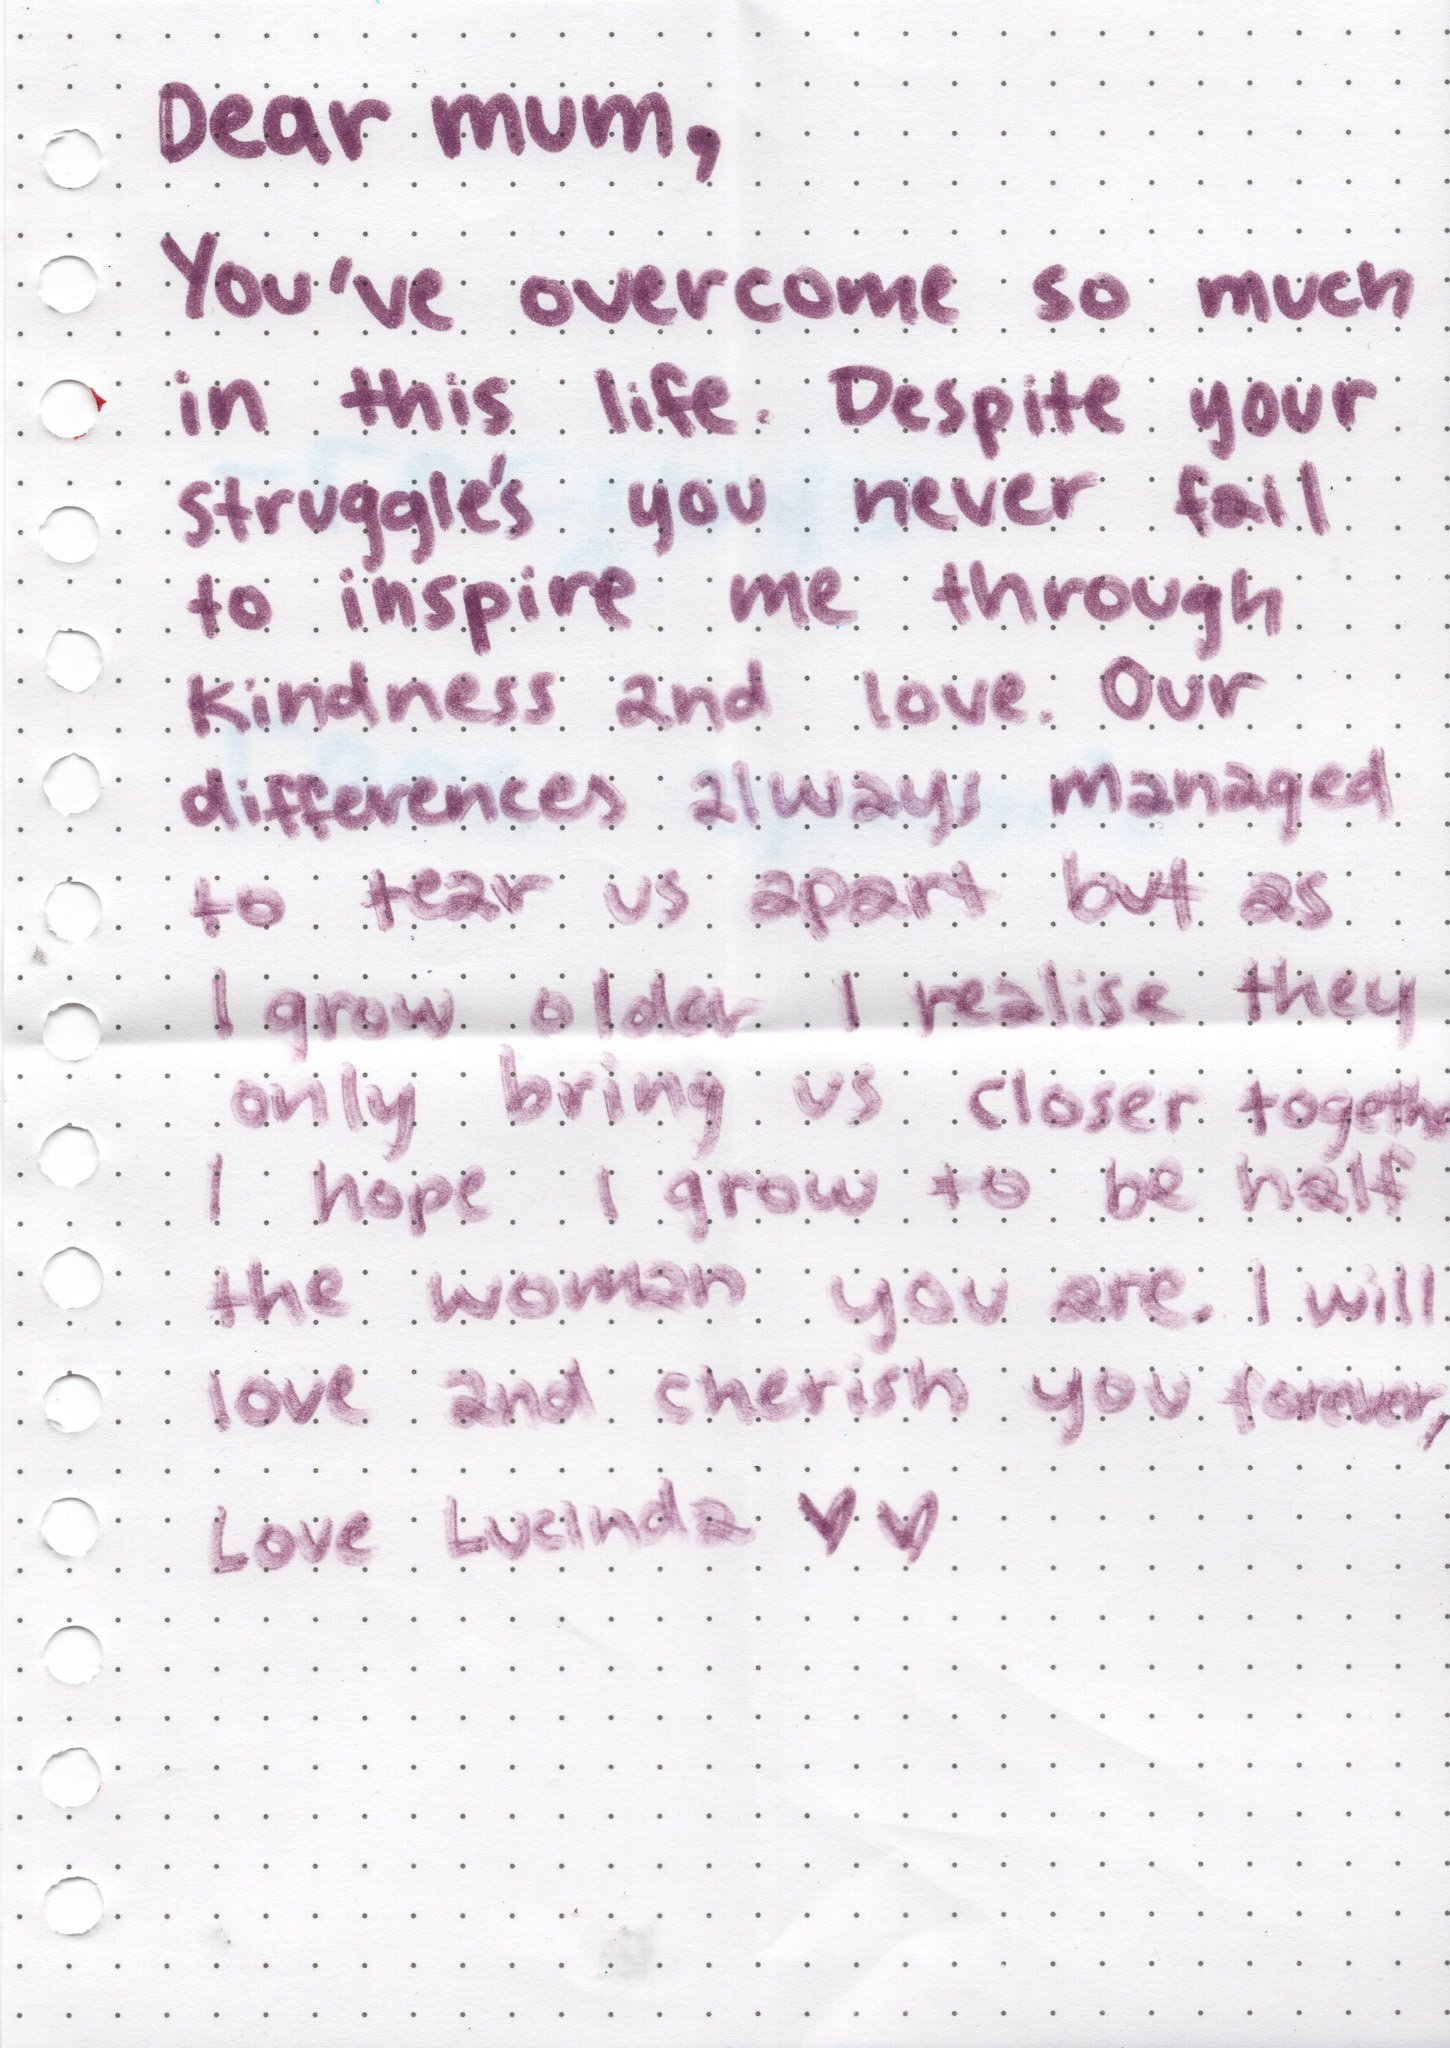 Dear mum,
You've overcome so much
in this life. Despite your
struggle's you never fail
to inspire me through
kindness and love. Our
differences always managed
to tear us apart but as
I grow older I realise they
only bring us closer together
I hope I grow to be half
the woman you are. I will
love and cherish you forever,
Love Lucinda ♥♥